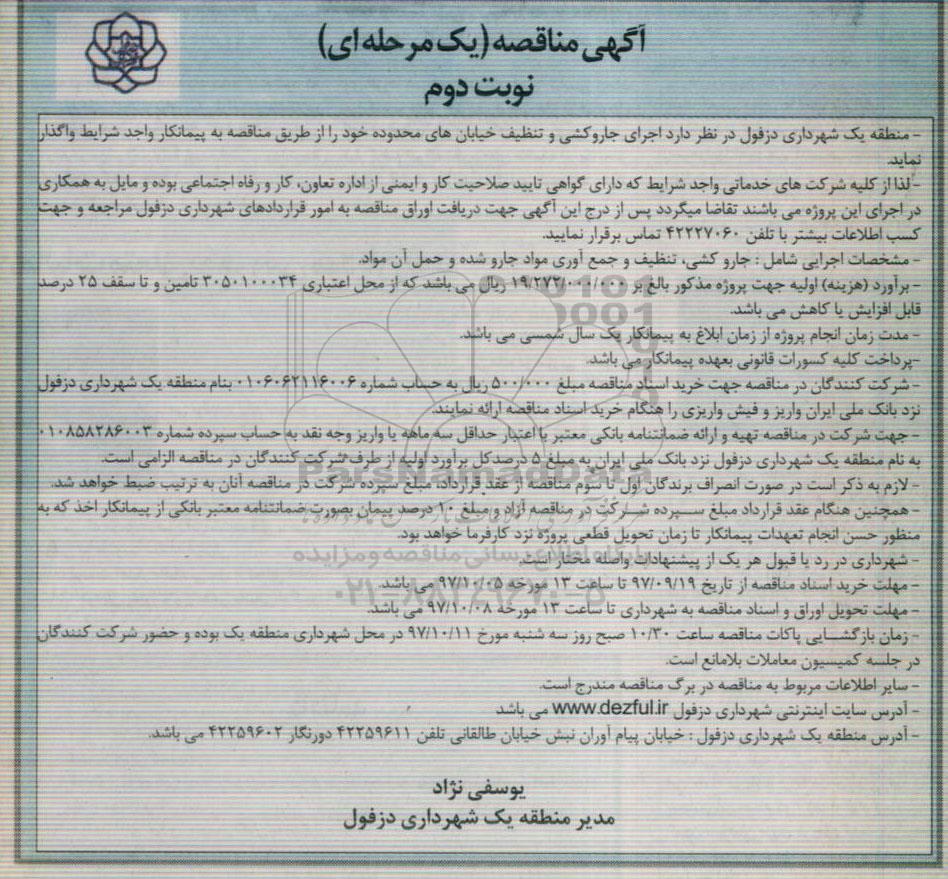 آگهی مناقصه (یک مرحله ای)
نوبت دوم
- منطقه یک شهرداری دزفول در نظر دارد اجرای جاروکشی و تنظیف خیابان های محدوده خود را از طریق مناقصه به پیمانکار واجد شرایط واگذار
نماید.
- لذا از کلیه شرکت های خدماتی واجد شرایط که دارای گواهی تایید صلاحیت کار و ایمنی از اداره تعاون، کار و رفاه اجتماعی بوده و مایل به همکاری
در اجرای این پروژه می باشند تقاضا میگردد پس از درج این آگهی جهت دریافت اوراق مناقصه به امور قراردادهای شهرداری دزفول مراجعه و جهت
کسب اطلاعات بیشتر با تلفن ۴۲۲۲۷۰۶۰ تماس برقرار نمایید.
- مشخصات اجرایی شامل : جارو کشی، تنظیف و جمع آوری مواد جارو شده و حمل آن مواد.
- برآورد (هزینه) اولیه جهت پروژه مذکور بالغ بر ۱۹/۲۷۲/۰۰۰/۰۰۰ ریال می باشد که از محل اعتباری ۳۰۵۰۱۰۰۰۳۴ تامین و تا سقف ۲۵ درصد
قابل افزایش یا کاهش می باشد.
- مدت زمان انجام پروژه از زمان ابلاغ به پیمانکار یک سال شمسی می باشد.
-پرداخت کلیه کسورات قانونی بعهده پیمانکار می باشد.
- شرکت کنندگان در مناقصه جهت خرید اسناد مناقصه مبلغ ۵۰۰/۰۰۰ ریال به حساب شماره ۰۱۰۶۰۶۲۱۱۶۰۰۶ بنام منطقه یک شهرداری دزفول
نزد بانک ملی ایران واریز و فیش واریزی را هنگام خرید اسناد مناقصه ارائه نمایند.
- جهت شرکت در مناقصه تهیه و ارائه ضمانتنامه بانکی معتبر با اعتبار حداقل سه ماهه یا واریز وجه نقد به حساب سپرده شماره ۰۱۰۸۵۸۲۸۶۰۰۳
به نام منطقه یک شهرداری دزفول نزد بانک ملی ایران به مبلغ ۵ درصدکل برآورد اولیه از طرف شرکت کنندگان در مناقصه الزامی است.
- لازم به ذکر است در صورت انصراف برندگان اول تا سوم مناقصه از عقد قرارداد، مبلغ سپرده شرکت در مناقصه آنان به ترتیب ضبط خواهد شد.
- همچنین هنگام عقد قرارداد مبلغ سپرده شرکت در مناقصه آزاد و مبلغ ۱۰ درصد پیمان بصورت ضمانتنامه معتبر بانکی از پیمانکار اخذ که به
منظور حسن انجام تعهدات پیمانکار تا زمان تحویل قطعی پروژه نزد کارفرما خواهد بود.
- شهرداری در رد یا قبول هر یک از پیشنهادات واصله مختار است.
- مهلت خرید اسناد مناقصه از تاریخ ۹۷/۰۹/۱۹ تا ساعت ۱۳ مورخه ۹۷/۱۰/۰۵ می باشد.
- مهلت تحویل اوراق و اسناد مناقصه به شهرداری تا ساعت ۱۳ مورخه ۹۷/۱۰/۰۸ می باشد.
- زمان بازگشایی پاکات مناقصه ساعت ۱۰/۳۰ صبح روز سه شنبه مورخ ۹۷/۱۰/۱۱ در محل شهرداری منطقه یک بوده و حضور شرکت کنندگان
در جلسه کمیسیون معاملات بلامانع است.
- سایر اطلاعات مربوط به مناقصه در برگ مناقصه مندرج است.
- آدرس سایت اینترنتی شهرداری دزفول www.dezful.ir می باشد
- آدرس منطقه یک شهرداری دزفول : خیابان پیام آوران نبش خیابان طالقانی تلفن ۴۲۲۵۹۶۱۱ دورنگار ۴۲۲۵۹۶۰۲ می باشد.
یوسفی نژاد
مدیر منطقه یک شهرداری دزفول
ParsNamadData
پایگاه اطلاع رسانی مناقصه و مزایده
۰۲۱-۸۸۳۴۹۶۷۰-۵